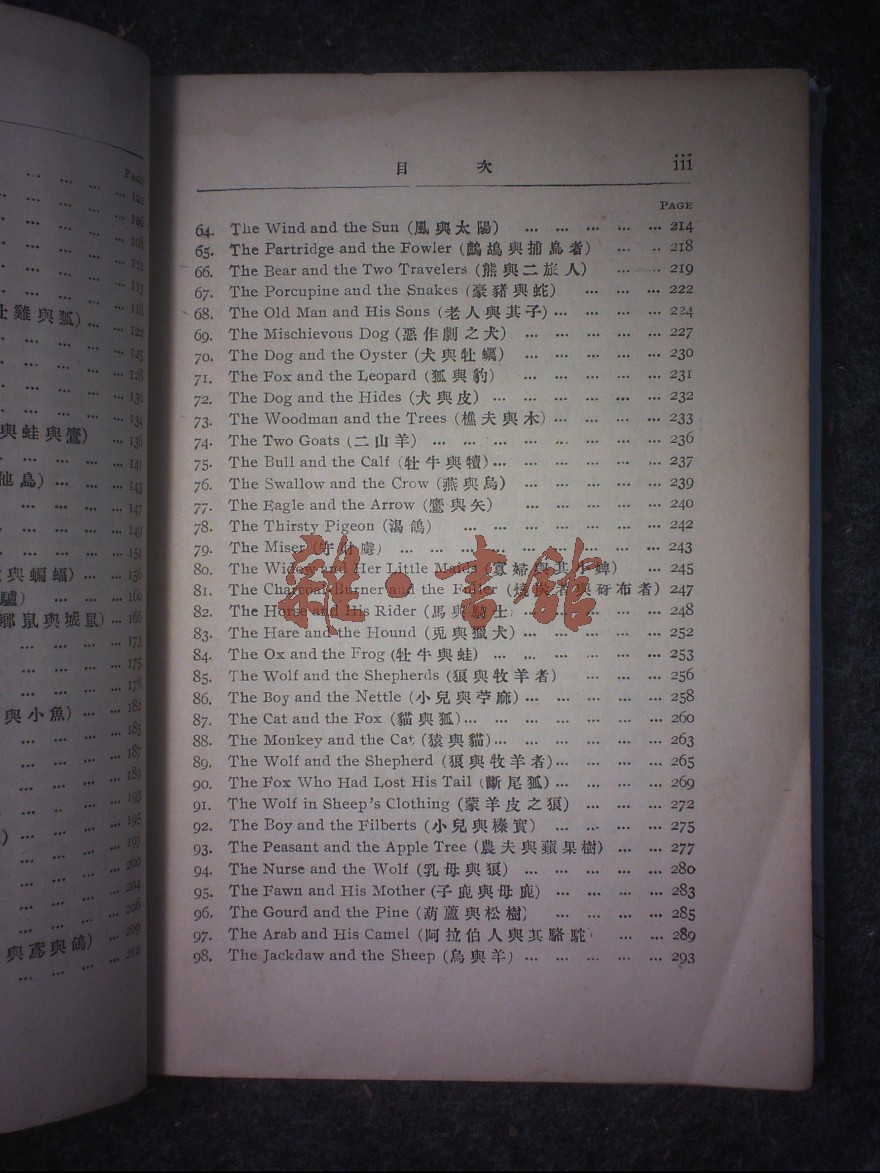 PAGE
100
106
108
110
113
118
牡雞與狐) ... 122
125
128
130
134
與蛙與鷹) ... 136
141
他鳥) ... ... ... 143
147
149
154
與蝙蝠) ... ... 156
驢) ... ... ... 160
鼠與城鼠) ... 166
173
175
178
與小魚) ... ... 182
185
187
189
193
195
) ... ... ... 197
200
204
206
209
與鳶與鴿) ... 212
目 次 iii
PAGE
64. The Wind and the Sun (風與太陽) ... ... ... ... ... 214
65. The Partridge and the Fowler (鷓鴣與捕鳥者) ... .. 218
66. The Bear and the Two Travelers (熊與二旅人) ... ... 219
67. The Porcupine and the Snakes (豪豬與蛇) ... ... ... 222
68. The Old Man and His Sons (老人與其子) ... ... ... ... 224
69. The Mischievous Dog (惡作劇之犬) ... ... ... ... ... 227
70. The Dog and the Oyster (犬與牡蠣) ... ... ... ... ... 230
71. The Fox and the Leopard (狐與豹) ... ... ... ... ... 231
72. The Dog and the Hides (犬與皮) ... ... ... ... ... 232
73. The Woodman and the Trees (樵夫與木) ... ... ... ... 233
74. The Two Goats (二山羊) ... ... ... ... ... ... ... ... 236
75. The Bull and the Calf (牡牛與犢) ... ... ... ... ... ... 237
76. The Swallow and the Crow (燕與烏) ... ... ... ... ... 239
77. The Eagle and the Arrow (鷹與矢) ... ... ... ... ... 240
78. The Thirsty Pigeon (渴鴿) ... ... ... ... ... ... ... 242
79. The Miser (守財虜) ... ... ... ... ... ... ... ... ... 243
80. The Widow and Her Little Maids (寡婦與其小婢) ... ... 245
81. The Charcoal-Burner and the Fuller (燒炭者與砑布者) 247
82. The Horse and His Rider (馬與騎士) ... ... ... ... ... 248
83. The Hare and the Hound (兎與獵犬) ... ... ... ... ... 252
84. The Ox and the Frog (牡牛與蛙) ... ... ... ... ... ... 253
85. The Wolf and the Shepherds (狼與牧羊者) ... ... ... 256
86. The Boy and the Nettle (小兒與苧麻) ... ... ... ... ... 258
87. The Cat and the Fox (貓與狐) ... ... ... ... ... ... ... 260
88. The Monkey and the Cat (猿與貓) ... ... ... ... ... ... 263
89. The Wolf and the Shepherd (狼與牧羊者) ... ... ... ... 265
90. The Fox Who Had Lost His Tail (斷尾狐) ... ... ... ... 269
91. The Wolf in Sheep's Clothing (蒙羊皮之狼) ... ... ... 272
92. The Boy and the Filberts (小兒與榛實) ... ... ... ... 275
93. The Peasant and the Apple Tree (農夫與蘋果樹) ... ... 277
94. The Nurse and the Wolf (乳母與狼) ... ... ... ... ... 280
95. The Fawn and His Mother (子鹿與母鹿) ... ... ... ... 283
96. The Gourd and the Pine (葫蘆與松樹) ... ... ... ... 285
97. The Arab and His Camel (阿拉伯人與其駱駝) ... ... 289
98. The Jackdaw and the Sheep (烏與羊) ... ... ... ... ... 293
雜·書館